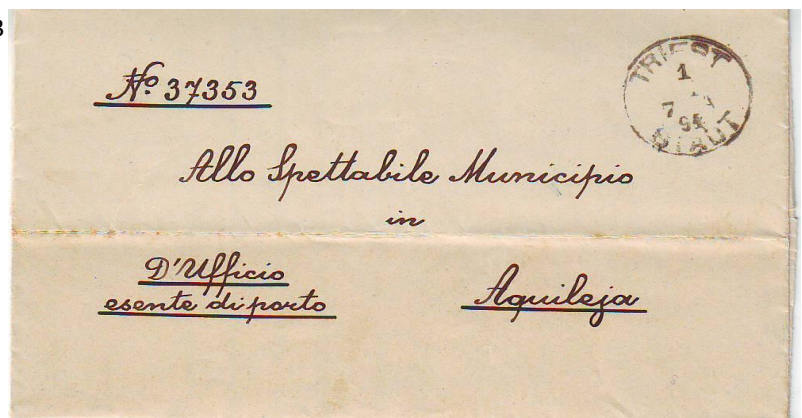 No. 37353
TRIEST
1
7
94
STADT
Allo Spettabile Municipio
in
D'Ufficio
esente di porto
Aquileja